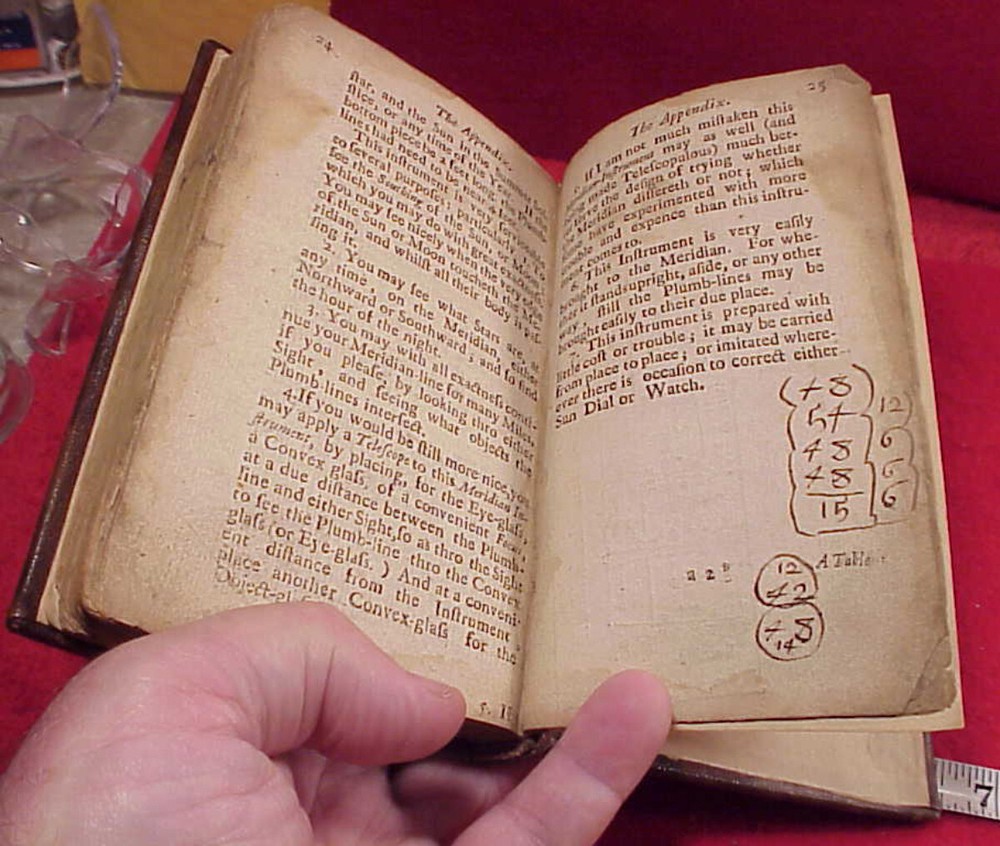 24
The Appendix.
ſtar, and the Sun in the
ſtice, or any time of the Year. If
bottom piece be 2 feet long the
lines had need to be near
This inſtrument is uſeful for
ſeveral purpoſes; particularly,
ſee the Southing of the Sun,
which you may do with great exactneſs
You may ſee nicely when the very
of the Sun or Moon toucheth the Me-
ridian, and whilſt all their body is paſ-
ſing it.
2. You may ſee what Stars are, at
any time, on the Meridian, either
Northward or Southward; and ſo find
the hour of the night.
3. You may with all exactneſs conti-
nue your Meridian-line for many Miles,
if you pleaſe, by looking thro either
Sight, and ſeeing what objects the
Plumb-lines interſect.
4. If you would be ſtill more nice, you
may apply a Teleſcope to this Meridian In-
ſtrument, by placing, for the Eye-glaſs,
a Convex glaſs, of a convenient Focus,
at a due diſtance between the Plumb-
line and either Sight, ſo as thro the Sight
to ſee the Plumb-line thro the Convex
glaſs (or Eye-glaſs.) And at a conveni-
ent diſtance from the Inſtrument
place another Convex-glaſs for the
Object-
5. If
25
The Appendix.
5. If I am not much miſtaken this
Inſtrument may as well (and
made Teleſcopalous) much bet-
the deſign of trying whether
the Meridian differeth or not; which
have experimented with more
and expence than this inſtru-
comes to.
This Inſtrument is very eaſily
brought to the Meridian. For whe-
ther it ſtands upright, aſide, or any other
way, ſtill the Plumb-lines may be
brought eaſily to their due place.
7. This inſtrument is prepared with
little coſt or trouble; it may be carried
from place to place; or imitated where-
ever there is occaſion to correct either
Sun Dial or Watch.
48
54 12
48 6
48 6
15 6
12 A Table
42
48
14